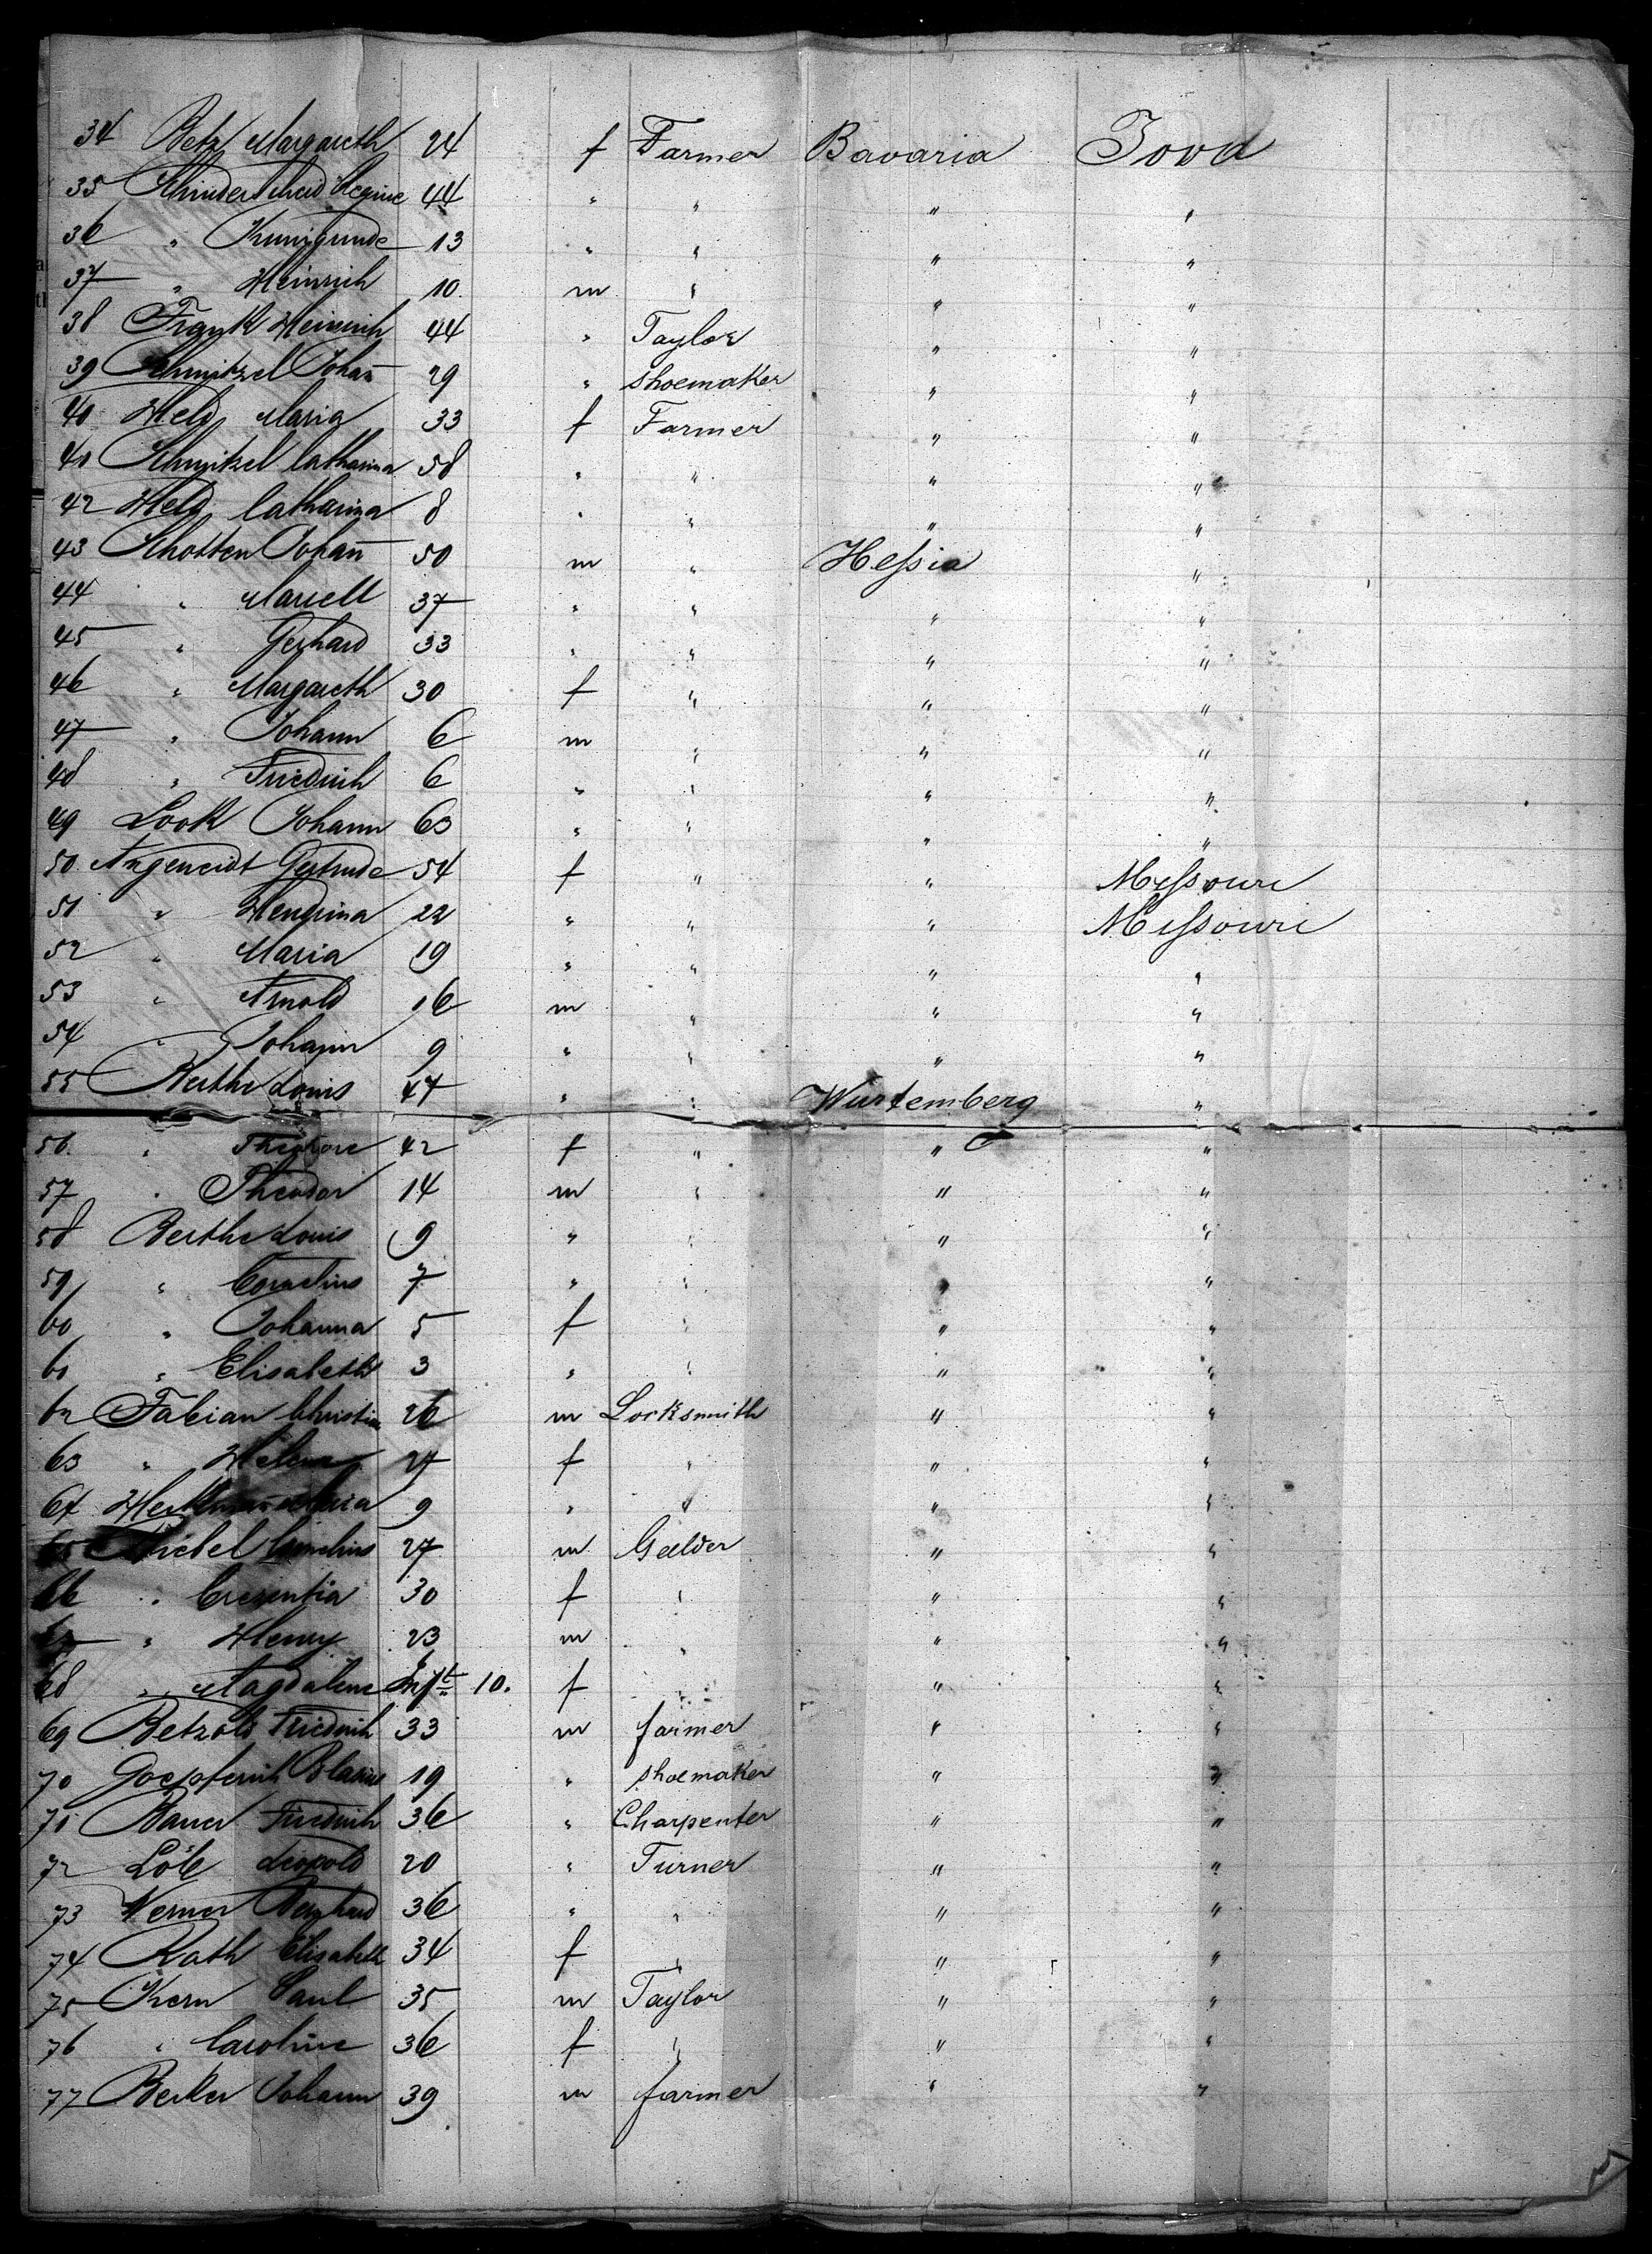 34 Betz Margareth 24 f Farmer Bavaria Jova
35 Schinderscheid Regine 44 " " " "
36 " Kunigunde 13 " " " "
37 " Heinrich 10 m " " "
38 Frank Heinrich 44 " Taylor " "
39 Schnitzel Johan̄ 29 " shoemaker " "
40 Held Maria 33 f Farmer " "
41 Schnitzel Catharina 58 " " " "
42 Held Catharina 8 " " " "
43 Schotten Johan̄ 50 m " Heſsia "
44 " 37 " " " "
45 " Gerhard 33 " " " "
46 " Margareth 30 f " " "
47 " Johann 6 m " " "
48 " Friedrich 6 " " " "
49 Look Johann 63 " " " "
50 Angeneidt Gertrude 54 f " " Miſsouri
51 " Hendrina 22 " " " Miſsouri
52 " Maria 19 " " " "
53 " Arnold 16 m " " "
54 " Johann 9 " " " "
55 Berthe Louis 47 " " Wurtemberg "
56 " 42 f " " "
57 " Theodor 14 m " " "
58 Berthe Louis 9 " " " "
59 " Cornelius 7 " " " "
60 " Johanna 5 f " " "
61 " Elisabeth 3 " " " "
62 Fabian Christian 26 m Locksmith " "
63 " Helena 27 f " " "
64 Maria 9 " " " "
65 Cornelius 27 m Gelder " "
66 " Crezentia 30 f " " "
67 " Henry 23 m " " "
68 " Magdalena 10. f " " "
69 Betzold Friedrich 33 m farmer " "
70 Goepferich Blasius 19 " shoemaker " "
71 Bauer Friedrich 36 " Charpenter " "
72 Löb Leopold 20 " Turner " "
73 Werner Bernhard 36 " " " "
74 Rath Elisabeth 34 f " " "
75 Kern Paul 35 m Taylor " "
76 " Caroline 36 f " " "
77 Becker Johann 39 m farmer " "